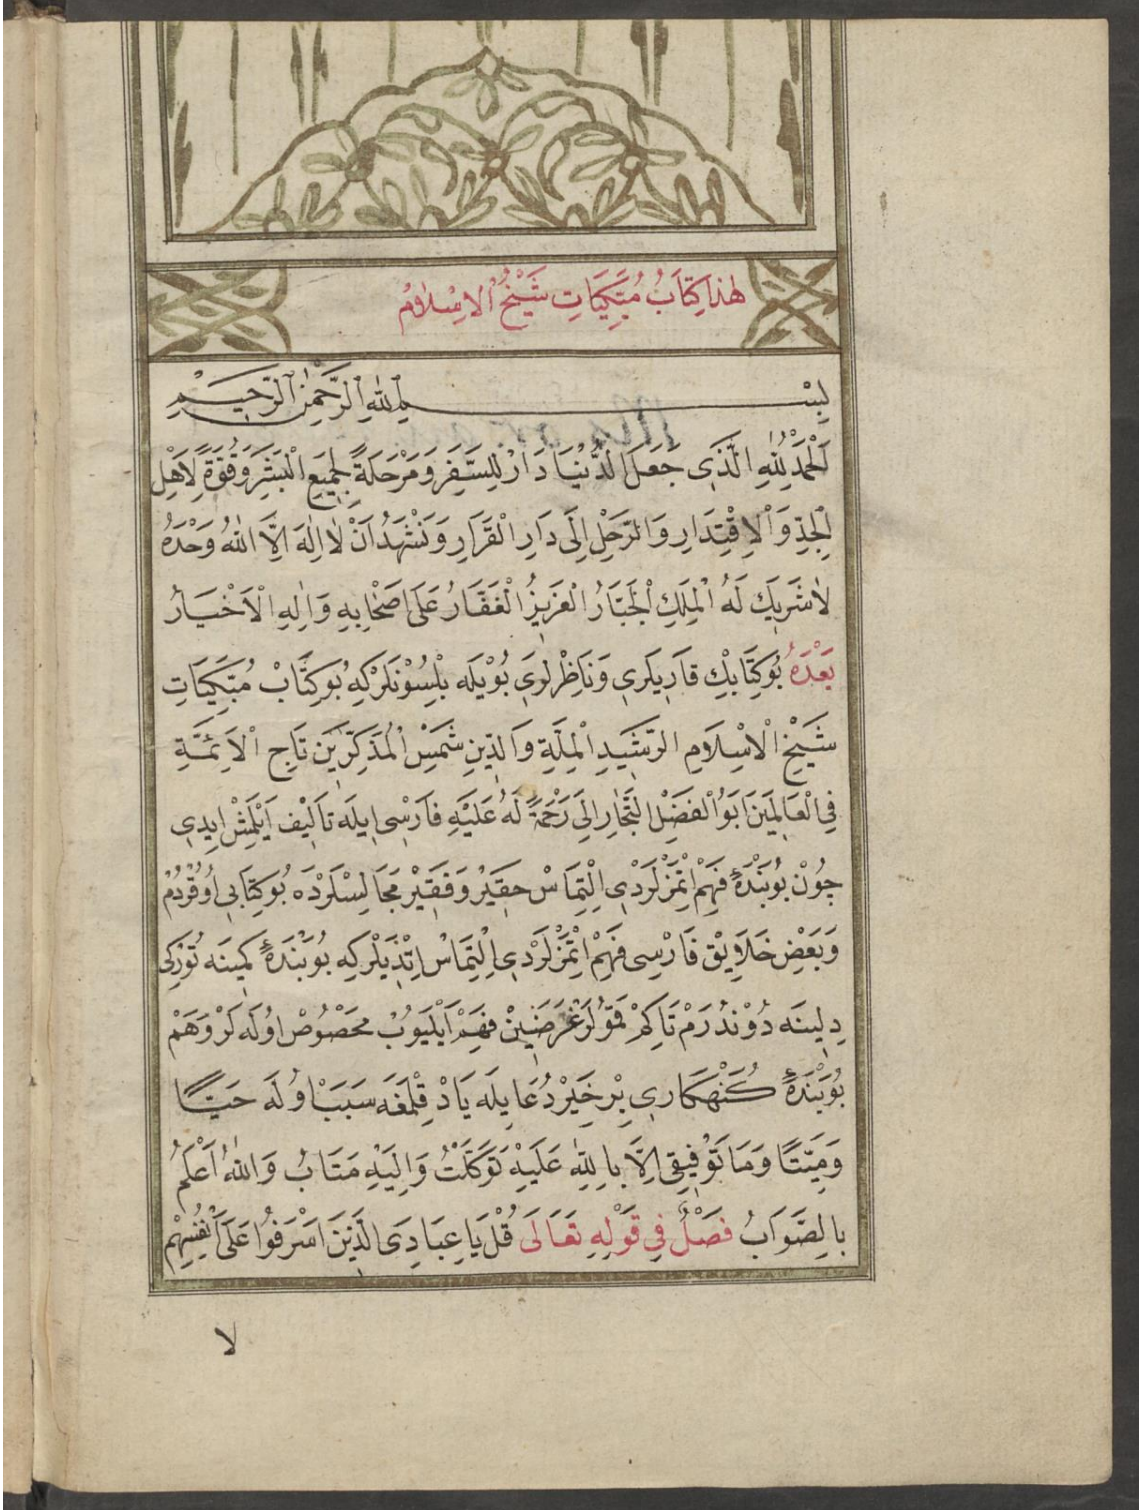 هٰذا كِتَابُ مُبَّكِيَاتِ شَيْخُ الْاِسْلَامُ
بِسْــــمِ اللهِ الرَّحْمٰنِ الرَّحِيــمِ
اَلْحَمْدُ لِلّٰهِ الَّذَي جَعَلَ الدُّنْيَا دَارْ لِلسَّفَرِ وَمَرْحَلَةً لِجَمِيَعِ الْبَشَرِ وَقُوَّةً لِاَهْلِ
الْجِدِّ وَالْاِقْتِدَارِ وَالرَّحْلِ اِلَى دَارِ الْقَرَارِ وَنَشْهَدُ اَنْ لٰا اِلٰهَ اِلَّا اللّٰهُ وَحْدَهُ
لٰا شَرِيَكَ لَهُ الْمَلِكِ الْجَبَّارُ الْعَزِيزُ الْغَفَّارُ عَلَى اَصْحَابِهِ وَاٰلِهِ الْاَخْيَارُ
بَعْدَهُ بُوكِتَابِكِ قَارِيلَرِي وَنَاظِرْلَرِي بُوْيلَه بِلْسُوْنلَرْكِه بُوكِتَابْ مُبَّكِيَاتِ
شَيْخِ الْاِسْلَامِ الرَّشَيِدِ الْمِلَّةِ وَالدِّينِ شَمْسْ الْمُذَكِّرِيَن تَاجِ الْاَئِمَّةِ
فِي الْعَالِمَيَن اَبُوالْفَضْلِ الْبُخَارِ اِلَى رَحْمَةً لَهُ عَلَيْهِ فَارْسِى اِيلَه تَاَلِيْف اَيْلَمِشْ اِيدِي
چُونْ بُوبَنْدَهٔ فَهِمْ اِتْمَزْلَرْدْي اِلْتِمَاسْ حِقَيِرْ وَفَقِيْر مَجَالِسْلَرْدَه بُوكِتَابِي اُوقُرْدُمْ
وَبَعْضِ خَلَايِقْ فَارْسِى فَهِمْ اِتْمَزْلَرْدِي اِلْتِمَاسْ اِتْدِيَلْركِه بُوبَنْدَهٔ كَمِينَه تُورْكِى
دِلِينَه دُوْنْدُرَمْ تَاكِمْ قَمُولَرْ غَرَضِيِنْ فَهِمْ اَيْلَيُوبْ مَحْصُوصْ اوُلَه لَرْ وَهَمْ
بُوبَنْدَهٔ كُنْهَكَارِي بِرْ خَيِرْ دُعَا يِلَه يَادْ قِلْمَغَه سَبَبْ اوُلَه حَيًّا
وَمَيِّتًا وَمَا تَوْفِيقِى اِلَّا بِاللّٰهِ عَلَيْهِ تَوَكَّلْتُ وَاِلَيْهِ مَتَابُ وَاللّٰهُ اَعْلَمُ
بِالصَّوَابُ فَصْلٌ فِي قَوْلِهِ تَعَالَى قُلْ يَا عِبَادِيَ الَّذَيِنَ اَسْرَفُوا عَلَى اَنْفُسِهِمْ
لا